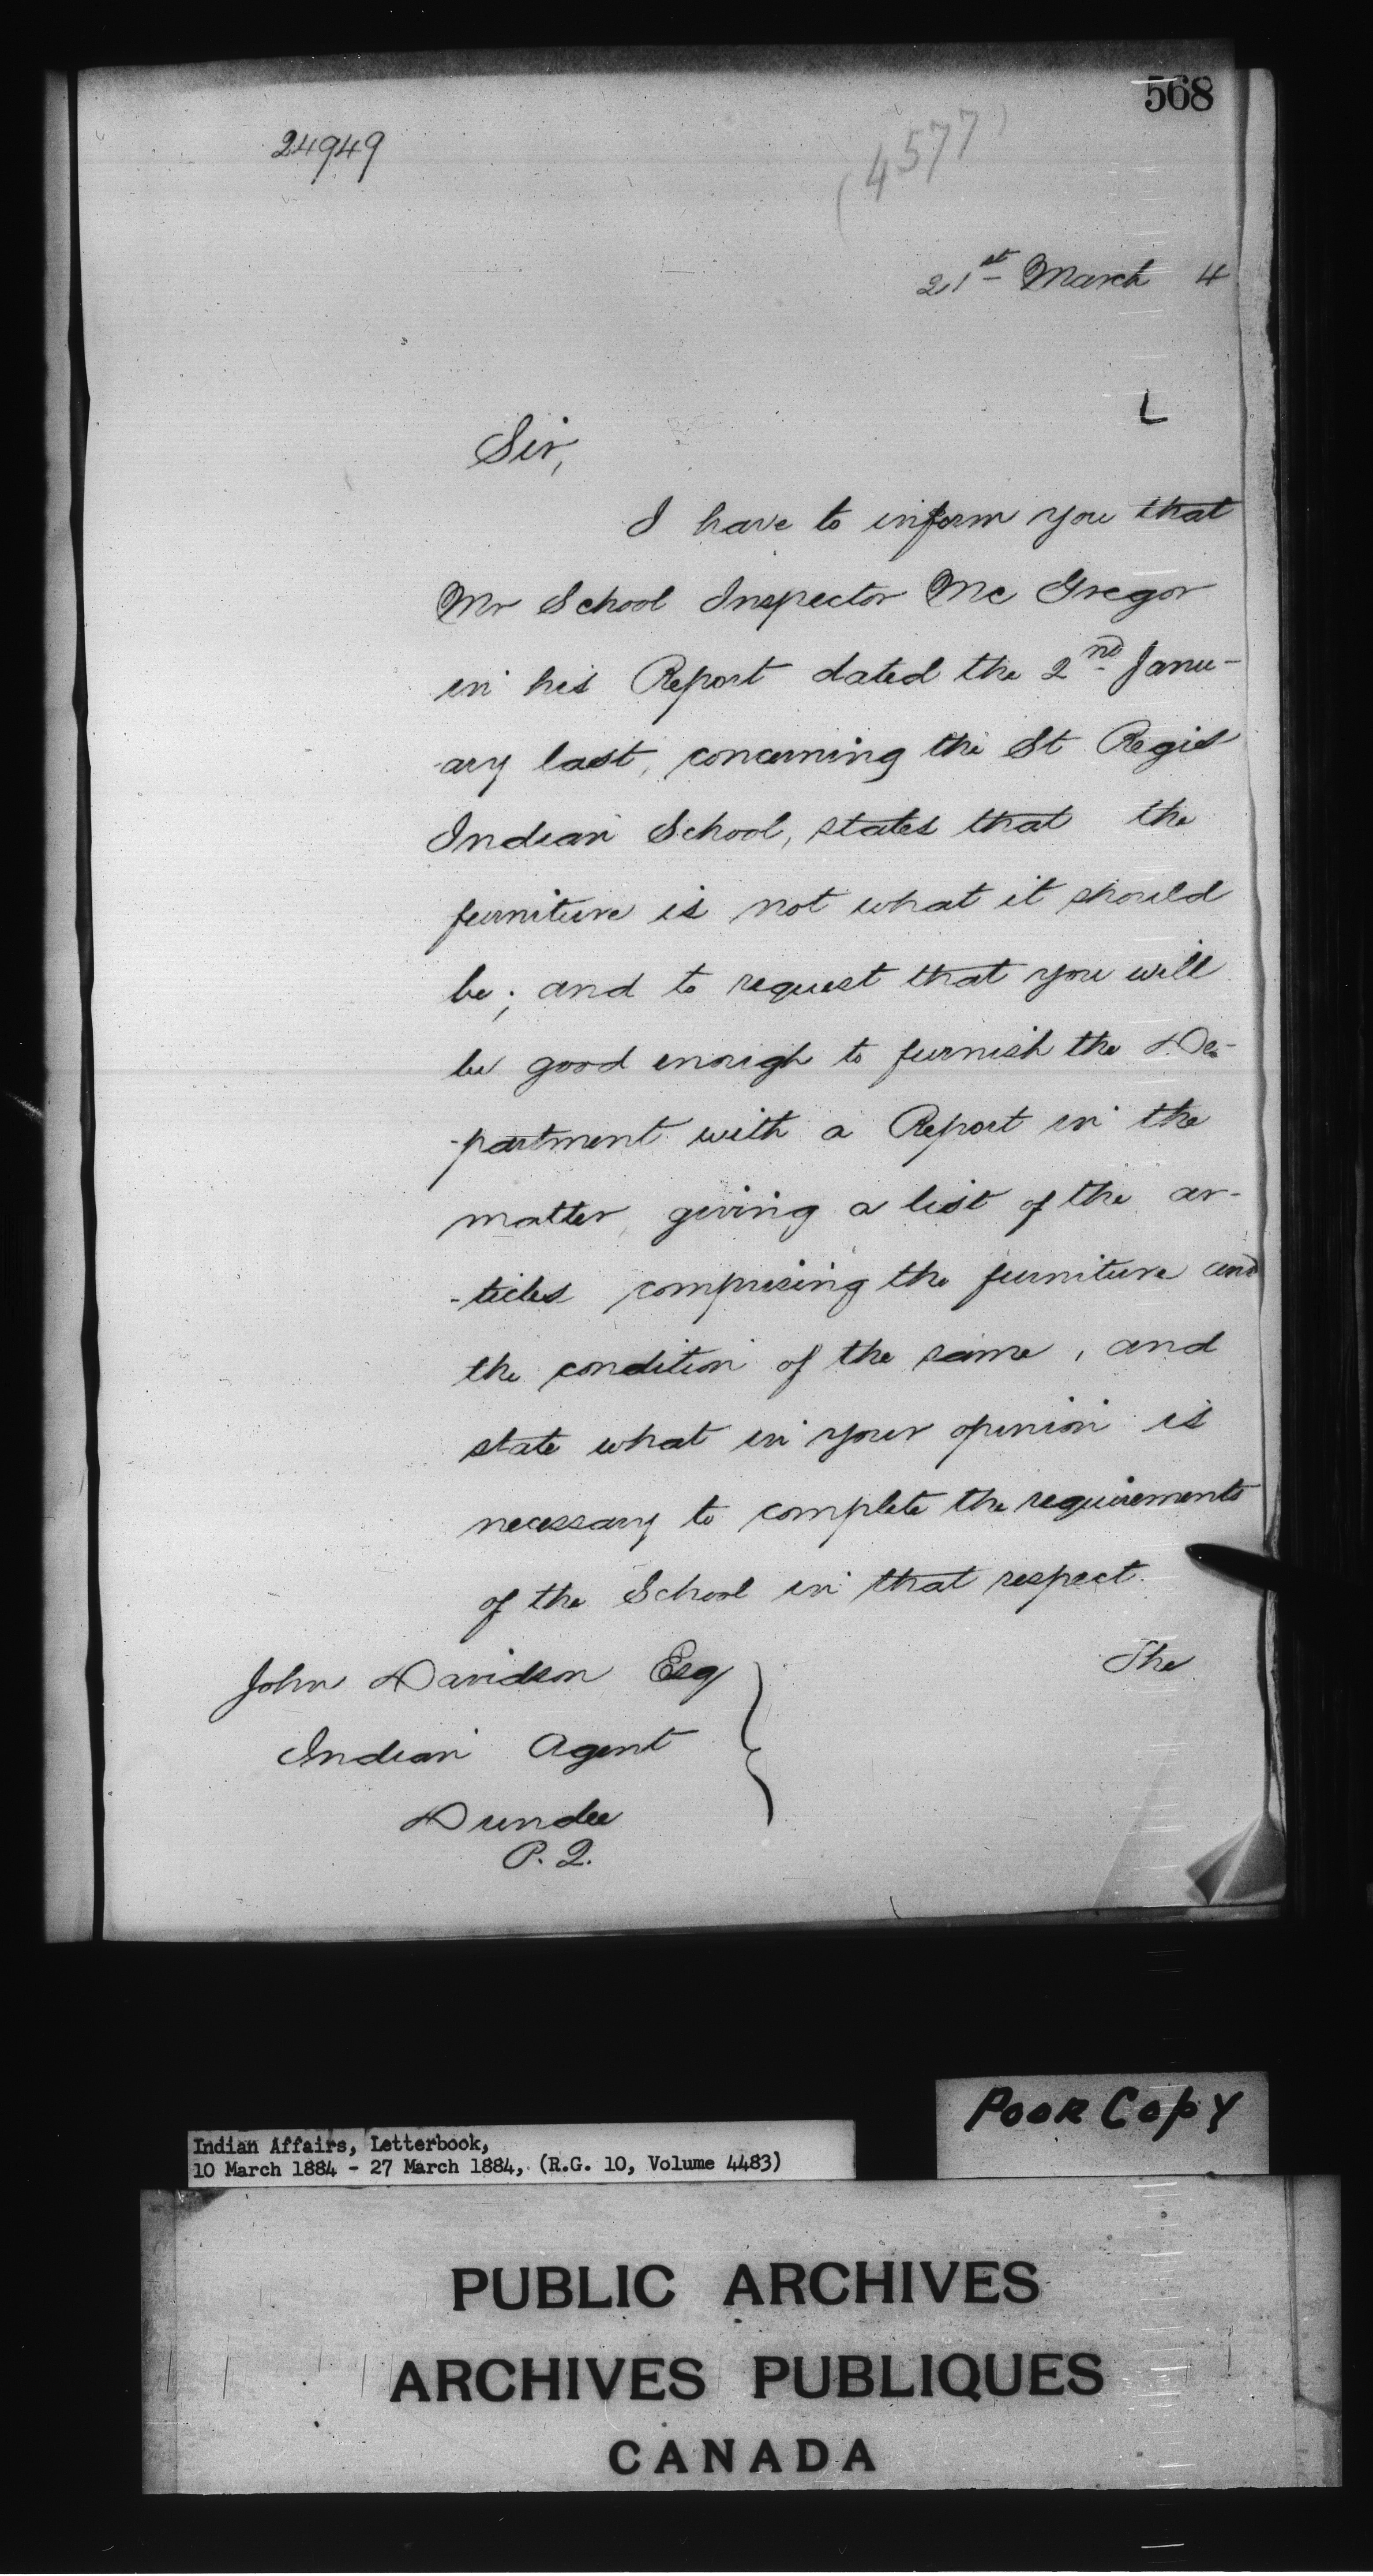 568
24949
(4577)
21st March 4
L
Sir,
I have to inform you that
Mr School Inspector Mc Gregor
in his Report dated the 2nd Janu-
-ary last, concerning the St Regis
Indian School, states that the
furniture is not what it should
be; and to request that you will
be good enough to furnish the De-
-partment with a Report in the
matter, giving a list of the ar-
-ticles comprising the furniture and
the condition of the same, and
state what in your opinion is
necessary to complete the requirements
of the School in that respect.
The
John Davidson Esq
Indian Agent
Dundee
P. Q.
Poor Copy
Indian Affairs, Letterbook,
10 March 1884 - 27 March 1884, (R.G. 10, Volume 4483)
PUBLIC ARCHIVES
ARCHIVES PUBLIQUES
CANADA